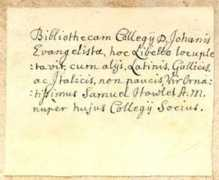 Bibliothecam Collegij D. Johanis
Evangelistæ, hoc Libello locuple
:tavit, cum alijs, Latinis, Gallicis,
ac Italicis, non paucis, Vir Orna:
:tissimus Samuel Howlet A.M.
nupèr hujus Collegij Socius.